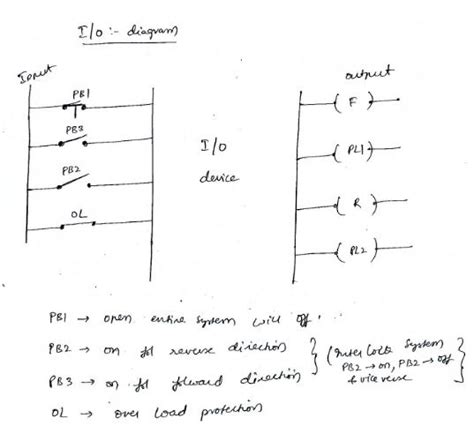 I/O :- diagram
Input
output
PB1
PB3
PB2
OL
I/O
device
F
PL1
R
PL2
PB1 → open entire system will off.
PB2 → on for reverse direction
PB3 → on for forward direction
(Inter lock system
PB2 → on, PB2 → off
& vice verse
OL → over load protection